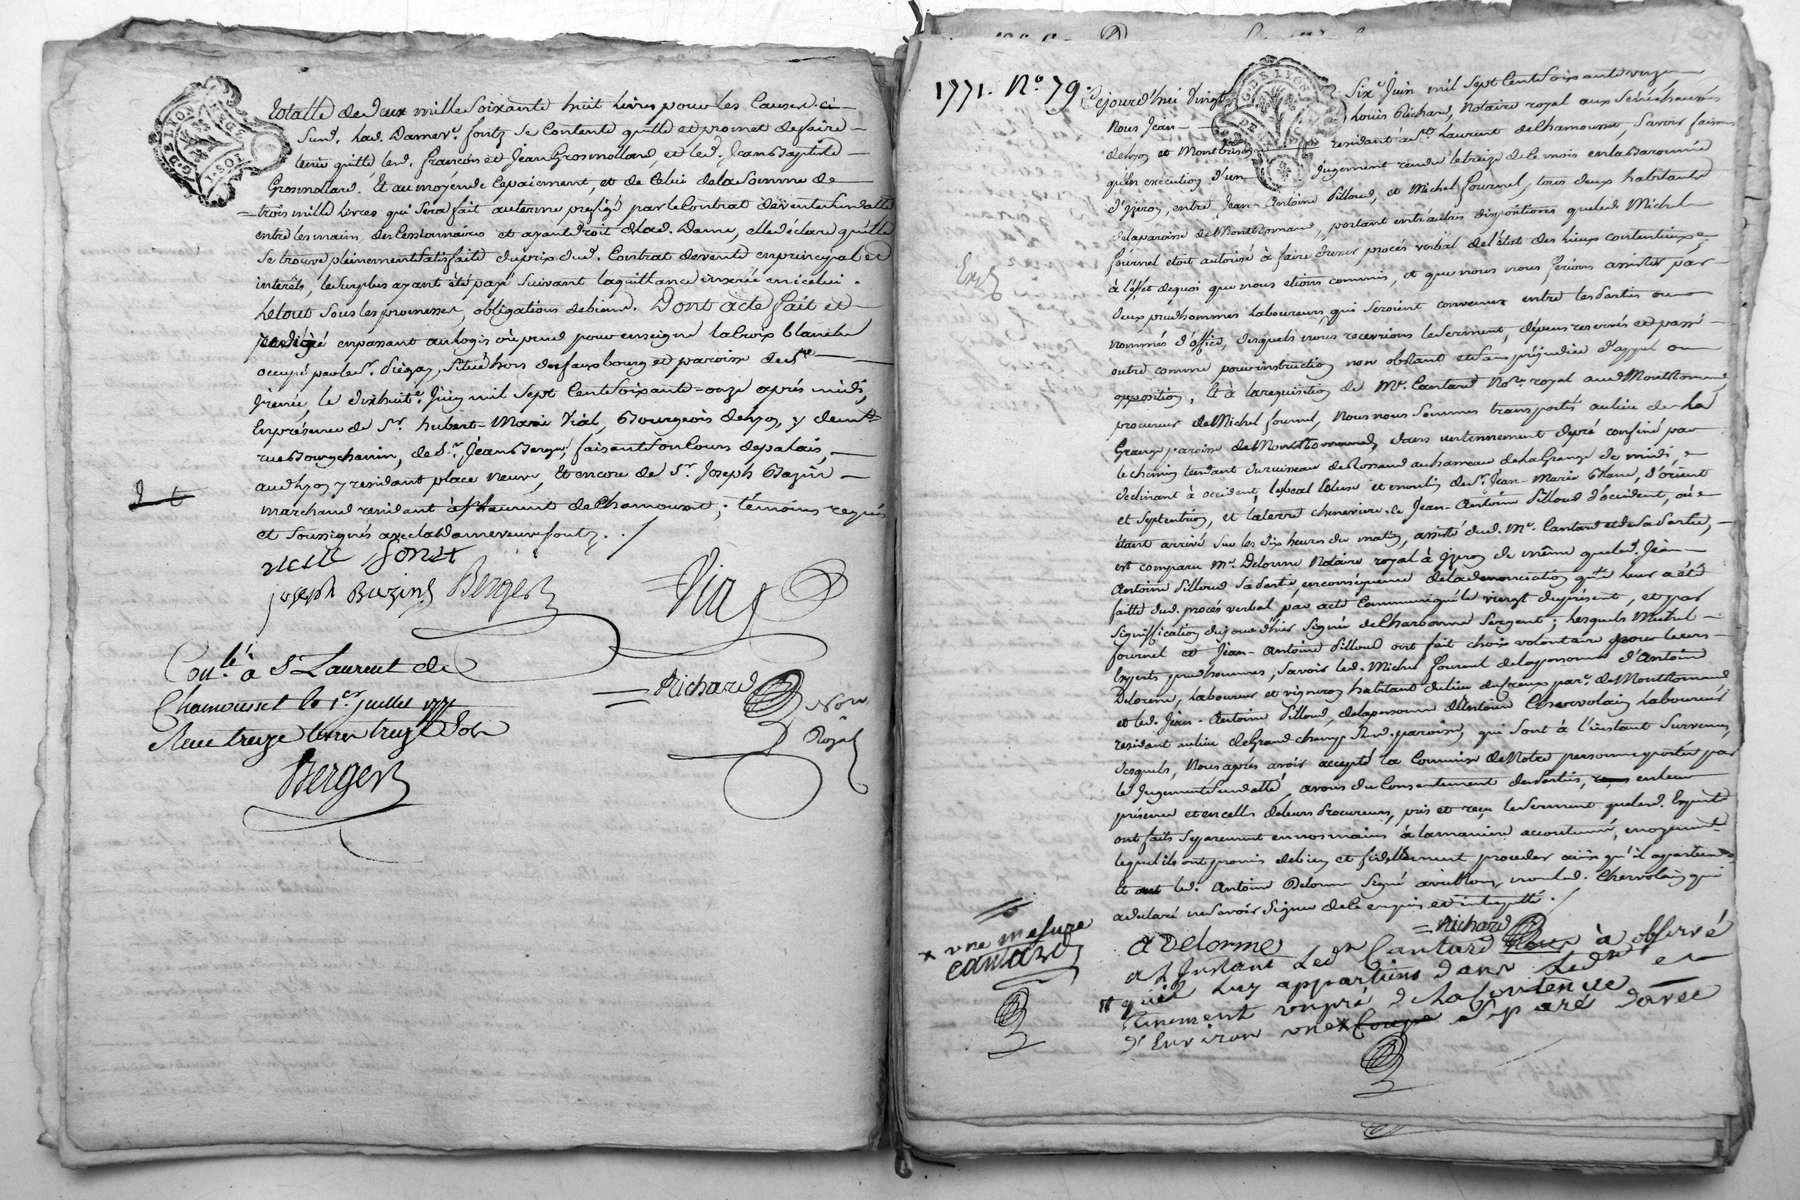 totalle de deux mille soixante huit livres pour les causes ci
Sund. lad. Dame ve. fontz se Contente quitte et promet de faire
tenir quitte led. françois et Jean Grosmolland, et led. Jean Baptiste
Grosmolland. Et au moyen de Ce paiement, et de Celui de la Somme de
trois mille livres qui Sera fait au terme prefigé par le Contrat de vente Sus datté
entre les mains des Cessionnaires et ayant droit de lad. Dame, elle déclare qu'elle
Se trouve pleinement Satisfaite du prix dud. Contrat de vente en principal et
intérêts, le Surplus ayant été payé Suivant la quittance inserée en icelui.
Le tout Sous les promesses, obligations de biens. Dont acte fait et
redigé en passant au logis où pend pour enseigne la Croix blanche
occupé par le Sr. Situé hors des fauxbourg et paroisse de St
Irenée, le dixhuite. Juin mil Sept Cent Soixante-onze après midi,
En présence de Sr. hubert-Marie Vial, Bourgeois de Lyon, y demt.
rue Bourgchanin, de Sr. Jean Berger, faisant Son Cours de palais,
aud. Lyon y residant place neuve, Et encore de Sr. Joseph Bazin
marchand residant à St. Laurent de Chamousset; témoins requis
et Soussignés avec lad. Dame veuve fontz.
Joseph Bazin Berger Vial
Con.lé à St Laurent de
Chamousset le 1er juillet 1771
Recu treize livres treize Sols
Berger
Richard
Nore
Royal
1771. No. 79. Cejourd'hui Vingt Sixe. Juin mil Sept Cent Soixante onze
Nous Jean Louis Richard, Notaire royal aux Sénéchaussées
de Lyon et Montbrison residant à St. Laurent de Chamousset, Savoir faisons
qu'en exécution d'un Jugement rendu le treize de Ce mois en la Baronnie
d'Yzeron, entre Jean-Antoine Pilloud, et Michel fournel, tous deux habitants
de la paroisse de Montromand, portant entr'autres dispositions que led. Michel
fournel étoit autorisé à faire dresser procès verbal de l'état des lieux contentieux
à l'effet de quoi que nous etions commis, et que nous nous ferions assister par
deux prudhommes Laboureurs qui Seroient convenus entre les Parties ou
nommés d'office, desquels nous recevrions le Serment, dépens reservés et passé
outre comme pour instruction non obstant et Sans préjudice d'appel ou
opposition, Et à la requisition de Me. Cantard Nore. royal aud. Montromand
procureur de Michel fournel, Nous nous Sommes transportés au lieu de La
Grange paroisse de Montromand, dans un tennement de pré confiné par
le chemin tendant du ruisseau de Rossand au hameau de la Grange de midi,
declinant à occident, et moulin de Sr. Jean-Marie d'orient
et Septentrion, et la terre cheneviere de Jean-Antoine Pilloud d'occident, où
étant arrivé Sur les dix heures du matin, assisté dud. Me. Cantard et de Sa Partie,
est comparu Me. Delorme Notaire royal à Yzeron de même que led. Jean-
Antoine Pilloud Sa Partie, en conséquence de la denonciation qui leur a été
faitte dud. procès verbal par acte Communiqué le vingt du présent, et par
Signiffication du jour d'hier Signée de Charbonne Sergent; Lesquels Michel
fournel et Jean-Antoine Pilloud ont fait choix volontaire pour leurs
Experts prudhommes, Savoir led. Michel fournel de la personne d'Antoine
Delorme, Laboureur et vigneron habitant du lieu du freux pare. de Montromand
et led. Jean-Antoine Pilloud, de la personne d'Antoine Chervolain Laboureur
residant au lieu de Grand champ Susd. paroisse, qui Sont à l'instant Survenus
Desquels, Nous après avoir accepté la Commission de Notre personne portée par
le Jugement Sus datté, avons du Consentement des Parties, en leur
présence et en celle de leurs Procureurs, pris et reçu le Serment que lesd. Experts
ont faits Separement en nos mains à la maniere accoutumée, moyennt.
lequel ils ont promis de bien et fidellement proceder ainsi qu'il appartient.
Et ont led. Antoine Delorme Signé avec Nous, non led. Chervolain qui
a declaré ne Savoir Signer de Ce enquis et interpellé.
Richard
A Delorme
a L'Instant Led. Me Cantard à observé
qu'il luy appartient dans Led.
tinement un pré De La Contenue
D'Environ une x Coupe Separé D'avec
x une mesure
Cantard